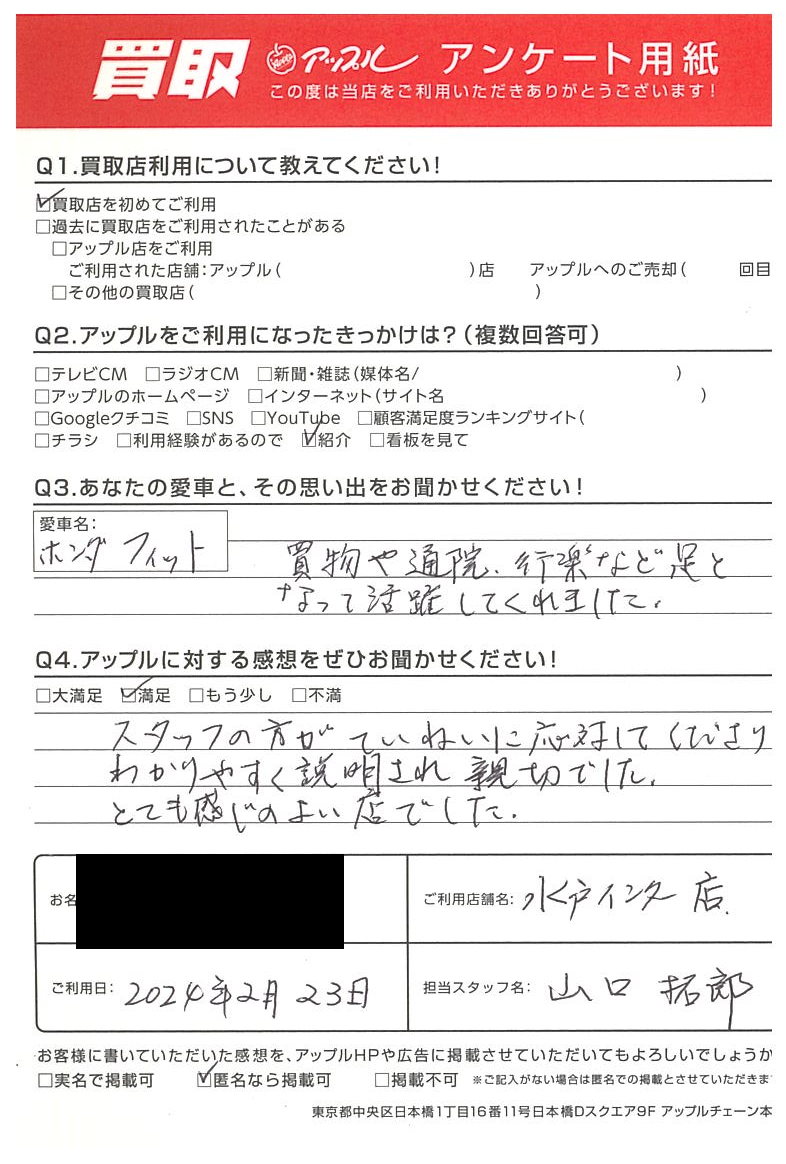 買取 アップル アンケート用紙
この度は当店をご利用いただきありがとうございます！
Q1.買取店利用について教えてください！
☑買取店を初めてご利用
□過去に買取店をご利用されたことがある
□アップル店をご利用
ご利用された店舗：アップル（ ）店 アップルへのご売却（ 回目
□その他の買取店（ ）
Q2.アップルをご利用になったきっかけは？（複数回答可）
□テレビCM □ラジオCM □新聞・雑誌（媒体名/ ）
□アップルのホームページ □インターネット（サイト名 ）
□Googleクチコミ □SNS □YouTube □顧客満足度ランキングサイト（
□チラシ □利用経験があるので ☑紹介 □看板を見て
Q3.あなたの愛車と、その思い出をお聞かせください！
愛車名：
ホンダ フィット
買物や通院、行楽など足と
なって活躍してくれました。
Q4.アップルに対する感想をぜひお聞かせください！
□大満足 ☑満足 □もう少し □不満
スタッフの方がていねいに応対してくださり
わかりやすく説明され親切でした。
とても感じのよい店でした。
お名
ご利用店舗名： 水戸インター店
ご利用日： 2024年2月23日
担当スタッフ名： 山口 拓郎
お客様に書いていただいた感想を、アップルHPや広告に掲載させていただいてもよろしいでしょうか
□実名で掲載可 ☑匿名なら掲載可 □掲載不可 ※ご記入がない場合は匿名での掲載とさせていただきま
東京都中央区日本橋1丁目16番11号日本橋Dスクエア9F アップルチェーン本